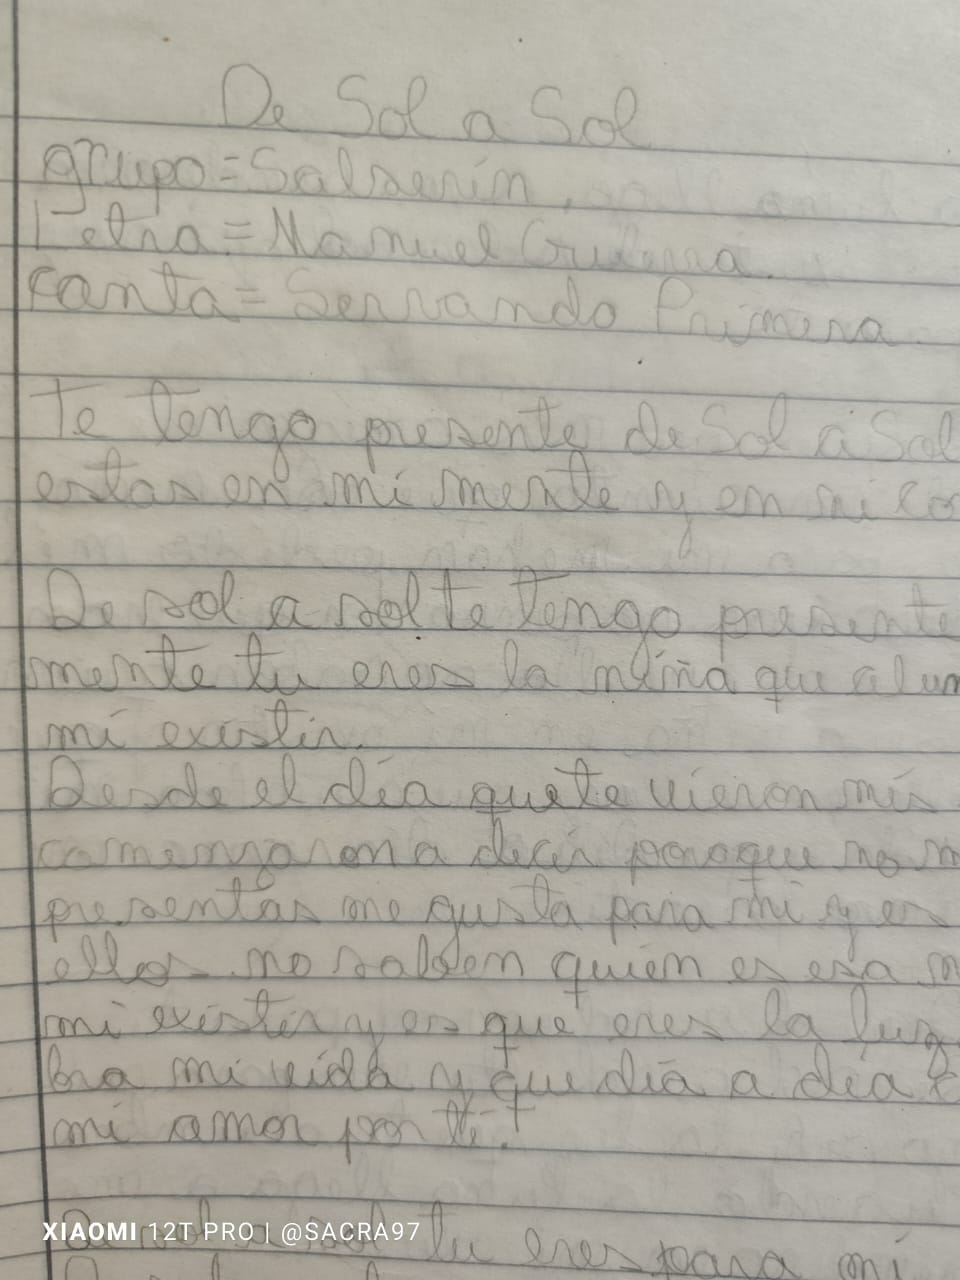 De Sol a Sol
grupo = Salserin,
Letra = Manuel Guerra.
Canta = Servando Primera.
Te tengo presente de Sol a Sol
estas en mi mente y en mi co
De sol a sol te tengo presente
mente tu eres la niña que alum
mi existir.
Desde el día que te vieron mis
comenzaron a decir porque no m
presentas me gusta para mi y es
ellos no saben quien es esa
mi existir y es que eres la luz
bra mi vida y que día a día
mi amor por ti.
De sol a sol tu eres para mi
XIAOMI 12T PRO | @SACRA97